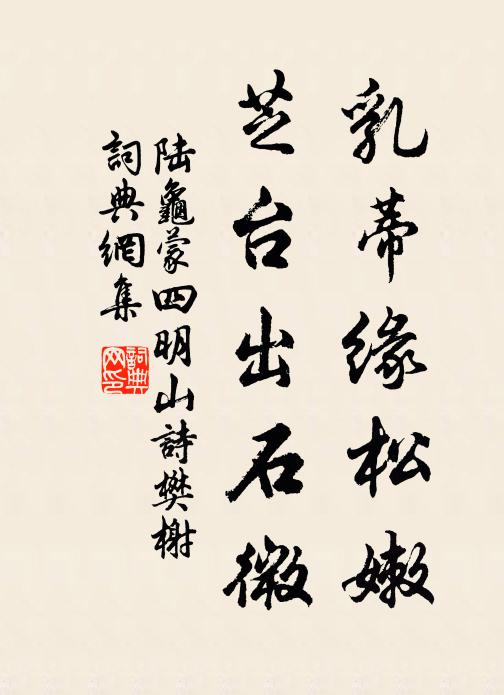 乳蒂缘松嫩
芝台出石微
陆龜蒙四明山詩樊榭
詞典網集
詞典网印